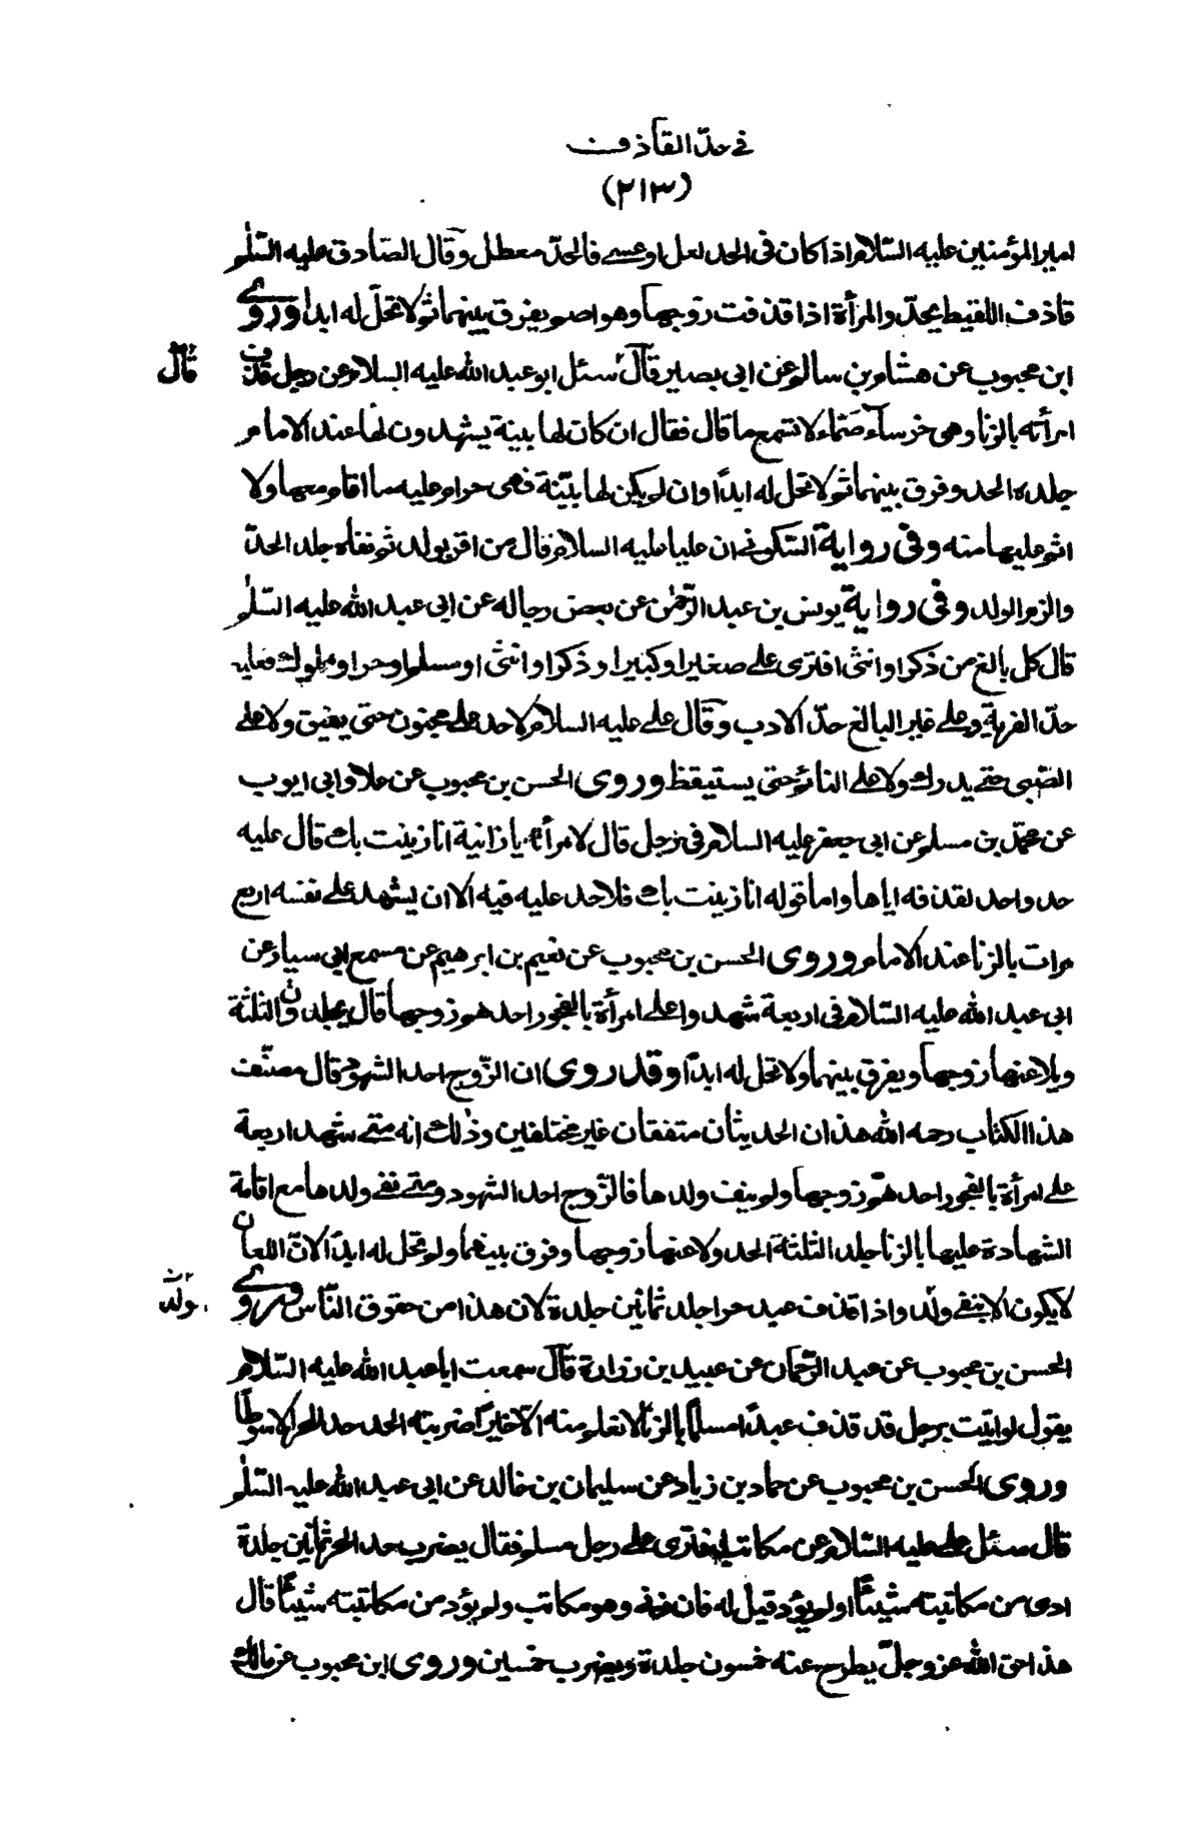 في حدّ القاذف
(٢١٣)
امير المؤمنين عليه السّلام اذا كان في الحد لعل او عسى فالحدّ معطل وقال الصّادق عليه السّلم
قاذف اللقيط يحدّ والمرأة اذا قذفت زوجها وهو اصم يفرق بينهما ثم لا تحلّ له ابدا وروى
ابن محبوب عن هشام بن سالم عن ابي بصير قال سئل ابو عبد الله عليه السلام عن رجل قذف
قال
امرأته بالزنا وهي خرساء صمّاء لا تسمع ما قال فقال ان كان لها بينة يشهدون لها عند الامام
جلده الحد وفرق بينهما ثم لا تحل له ابدًا وان لم يكن لها بيّنة فهي حرام عليه ما اقام معها ولا
اثم عليها منه وفي رواية السّكوني ان عليا عليه السلام قال من اقر بولد ثم نفاه جلد الحدّ
والزم الولد وفي رواية يونس بن عبد الرّحمٰن عن بعض رجاله عن ابي عبد الله عليه السّلم
قال كل بالغ من ذكر او انثى افترى على صغير او كبير او ذكر او انثى او مسلم او حر او مملوك فعليه
حدّ الفرية وعلى غير البالغ حدّ الادب وقال علي عليه السلام لا حد على مجنون حتى يفيق ولا على
الصّبي حتى يدرك ولا على النائم حتى يستيقظ وروى الحسن بن محبوب عن علا وابي ايوب
عن محمّد بن مسلم عن ابي جعفر عليه السلام في رجل قال لامرأته يا زانية انا زنيت بك قال عليه
حد واحد لقذفه اياها واما قوله انا زنيت بك فلا حد عليه فيه الا ان يشهد على نفسه اربع
مرات بالزنا عند الامام وروى الحسن بن محبوب عن نعيم بن ابرهيم عن مسمع ابي سيار عن
ابي عبد الله عليه السّلام في اربعة شهدوا على امرأة بالفجور احدهم زوجها قال يجلدون الثلثة
ويلاعنها زوجها ويفرق بينهما ولا تحل له ابدًا وقد روى ان الزّوج احد الشهود قال مصنّف
هذا الكتاب رحمه الله هذان الحديثان متفقان غير مختلفين وذلك انه متى شهد اربعة
على امرأة بالفجور احدهم زوجها ولم ينف ولدها فالزّوج احد الشهود ومتى نفى ولدها مع اقامة
الشهادة عليها بالزنا جلد الثلثة الحد ولاعنها زوجها وفرق بينهما ولم تحل له ابدًا لانّ اللعان
لا يكون الا بنفي ولد واذا قذف عبد حرا جلد ثمانين جلدة لان هذا من حقوق النّاس وروى
ولد
الحسن بن محبوب عن عبد الرّحمان عن عبيد بن زرارة قال سمعت ابا عبد الله عليه السّلام
يقول لو اتيت برجل قد قذف عبدًا مسلمًا بالزنا لا نعلم منه الّا خيرًا لضربته الحد حد الحر الا سوطًا
وروى الحسن بن محبوب عن حماد بن زياد عن سليمان بن خالد عن ابي عبد الله عليه السّلم
قال سئل علي عليه السّلام عن مكاتب افترى على رجل مسلم فقال يضرب حد الحر ثمانين جلدة
ادى من مكاتبته شيئًا او لم يؤد قيل له فان زنى وهو مكاتب ولم يؤد من مكاتبته شيئًا قال
هذا حق الله عز وجلّ يطرح عنه خمسون جلدة ويضرب خمسين وروى ابن محبوب عن مالك